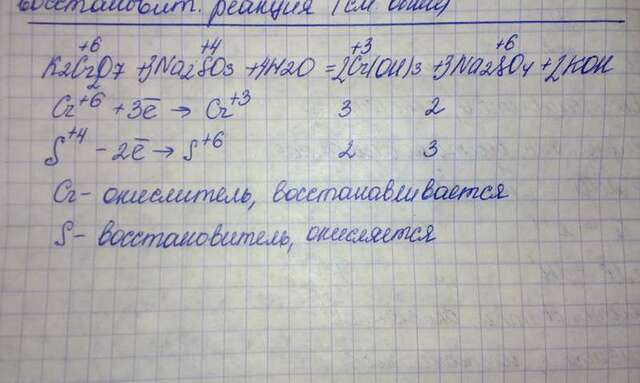 восстановит. реакция (см.
+6 +4 +3 +6
K2Cr2O7 + 3Na2SO3 + 4H2O = 2Cr(OH)3 + 3Na2SO4 + 2KOH
Cr+6 + 3ē → Cr+3 3 2
S+4 - 2ē → S+6 2 3
Cr - окислитель, восстанавливается
S - восстановитель, окисляется